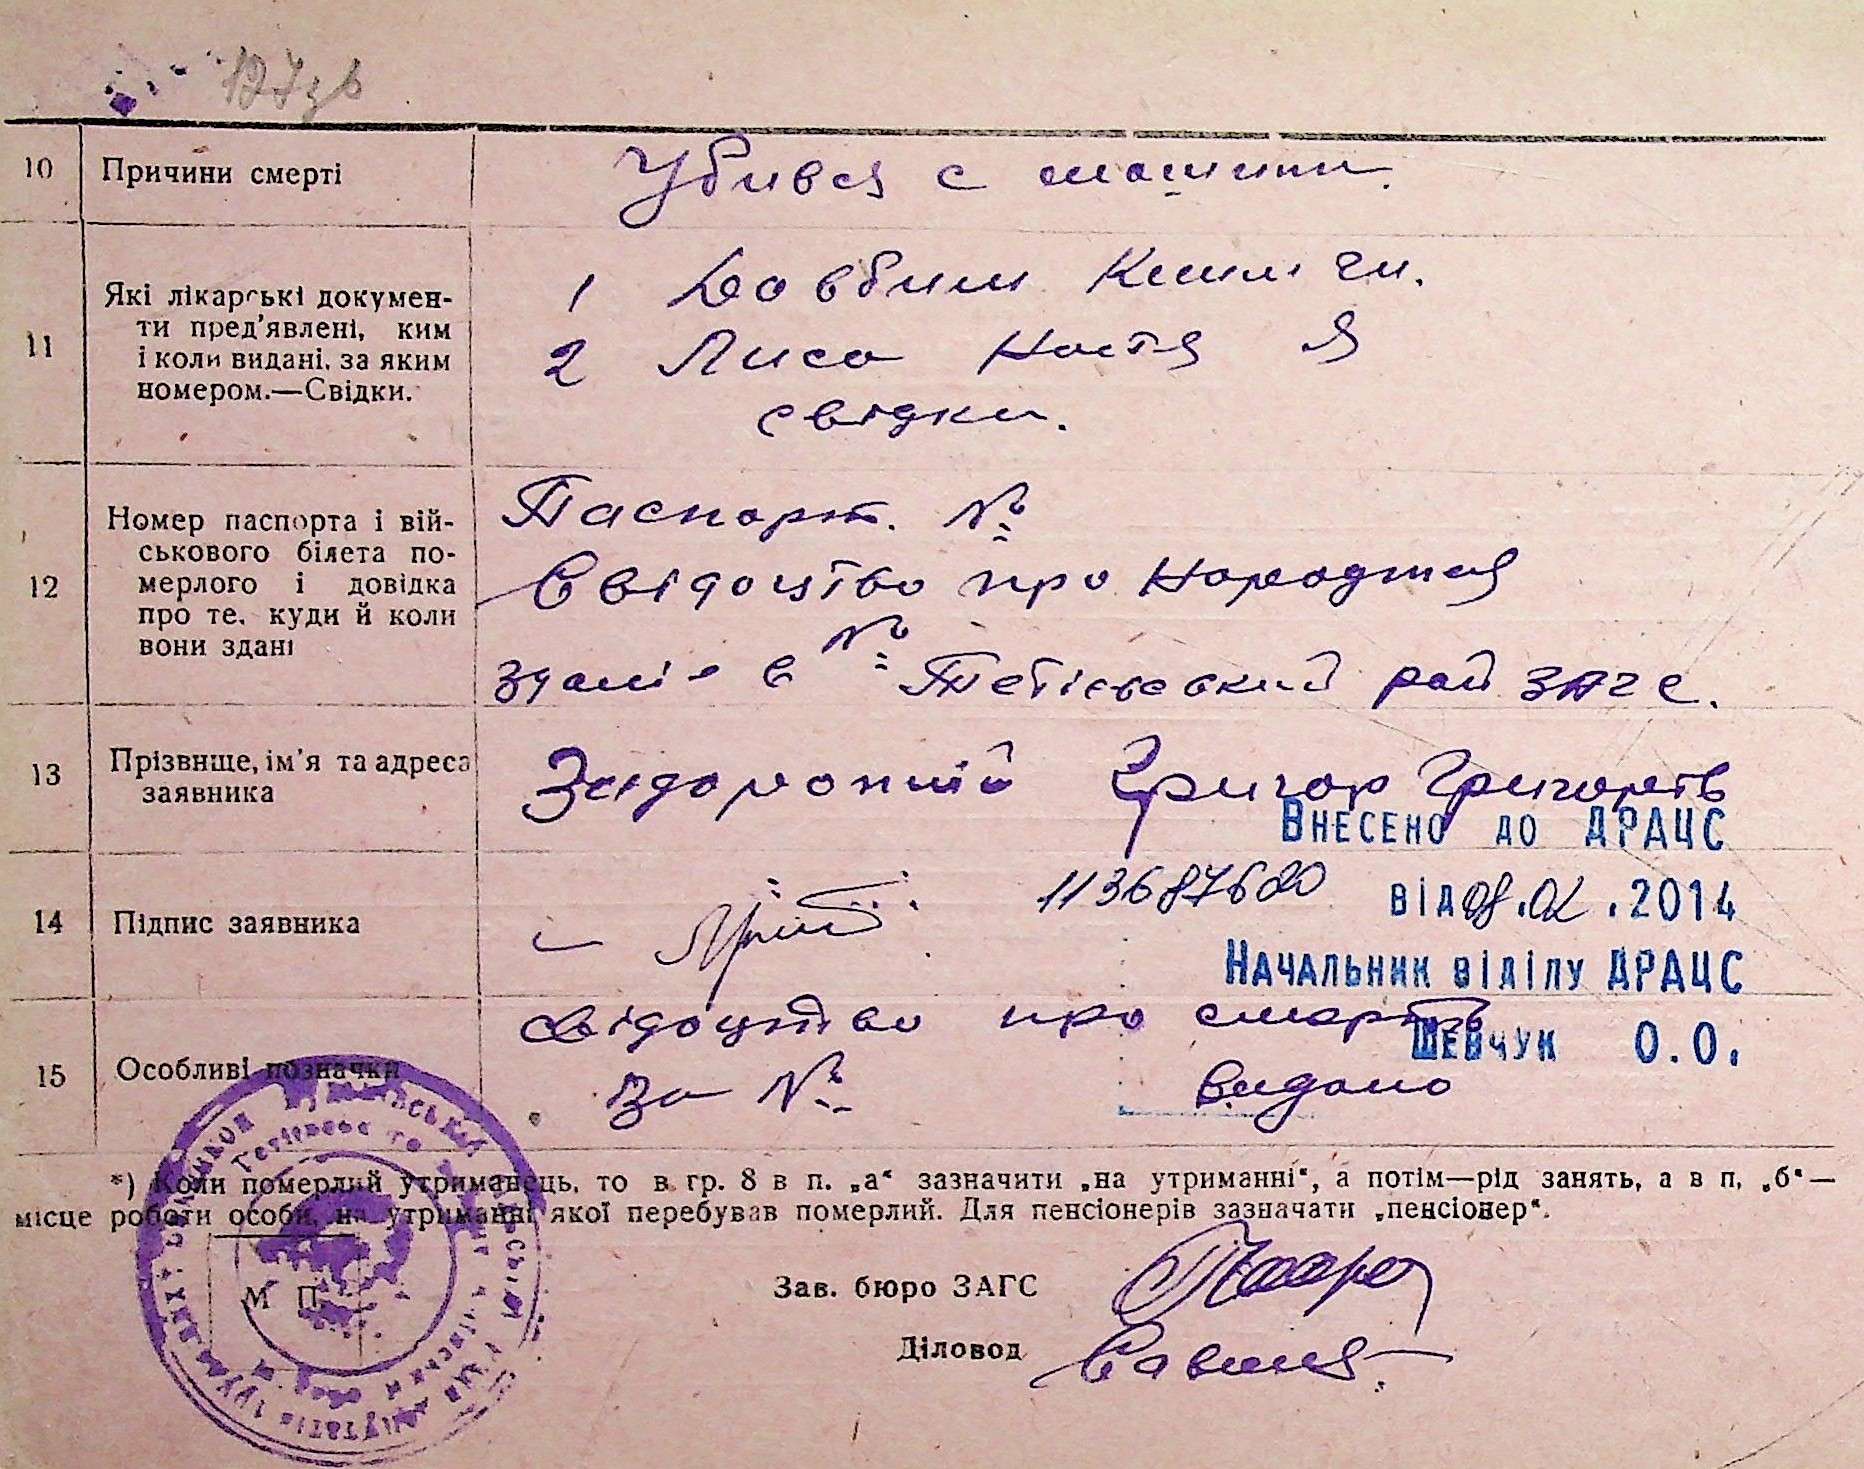 127 зв
10 Причини смерті
Убився с машини.
11 Які лікарські докумен-
ти пред'явлені, ким
і коли видані, за яким
номером.—Свідки.
1 Довбиш
2 Лиса Настя Я
свідки.
12 Номер паспорта і вій-
ськового білета по-
мерлого і довідка
про те, куди й коли
вони здані
Паспорт. №
Свідоцтво про народження
№
здані в Тетієвський рай ЗАГС.
13 Прізвище, ім'я та адреса
заявника
Задорожній Григор Григоров
Внесено до ДРАЦС
14 Підпис заявника
1136876 від 08.02.2014
Начальник віділу ДРАЦС
Шевчук О.О.
15 Особливі позначки
Свідоцтво про смерть
за № видано
*) Коли померлий утриманець, то в гр. 8 в п. „а“ зазначити „на утриманні“, а потім—рід занять, а в п. „б“—
місце роботи особи, на утриманні якої перебував померлий. Для пенсіонерів зазначати „пенсіонер“.
М П
Зав. бюро ЗАГС
Діловод